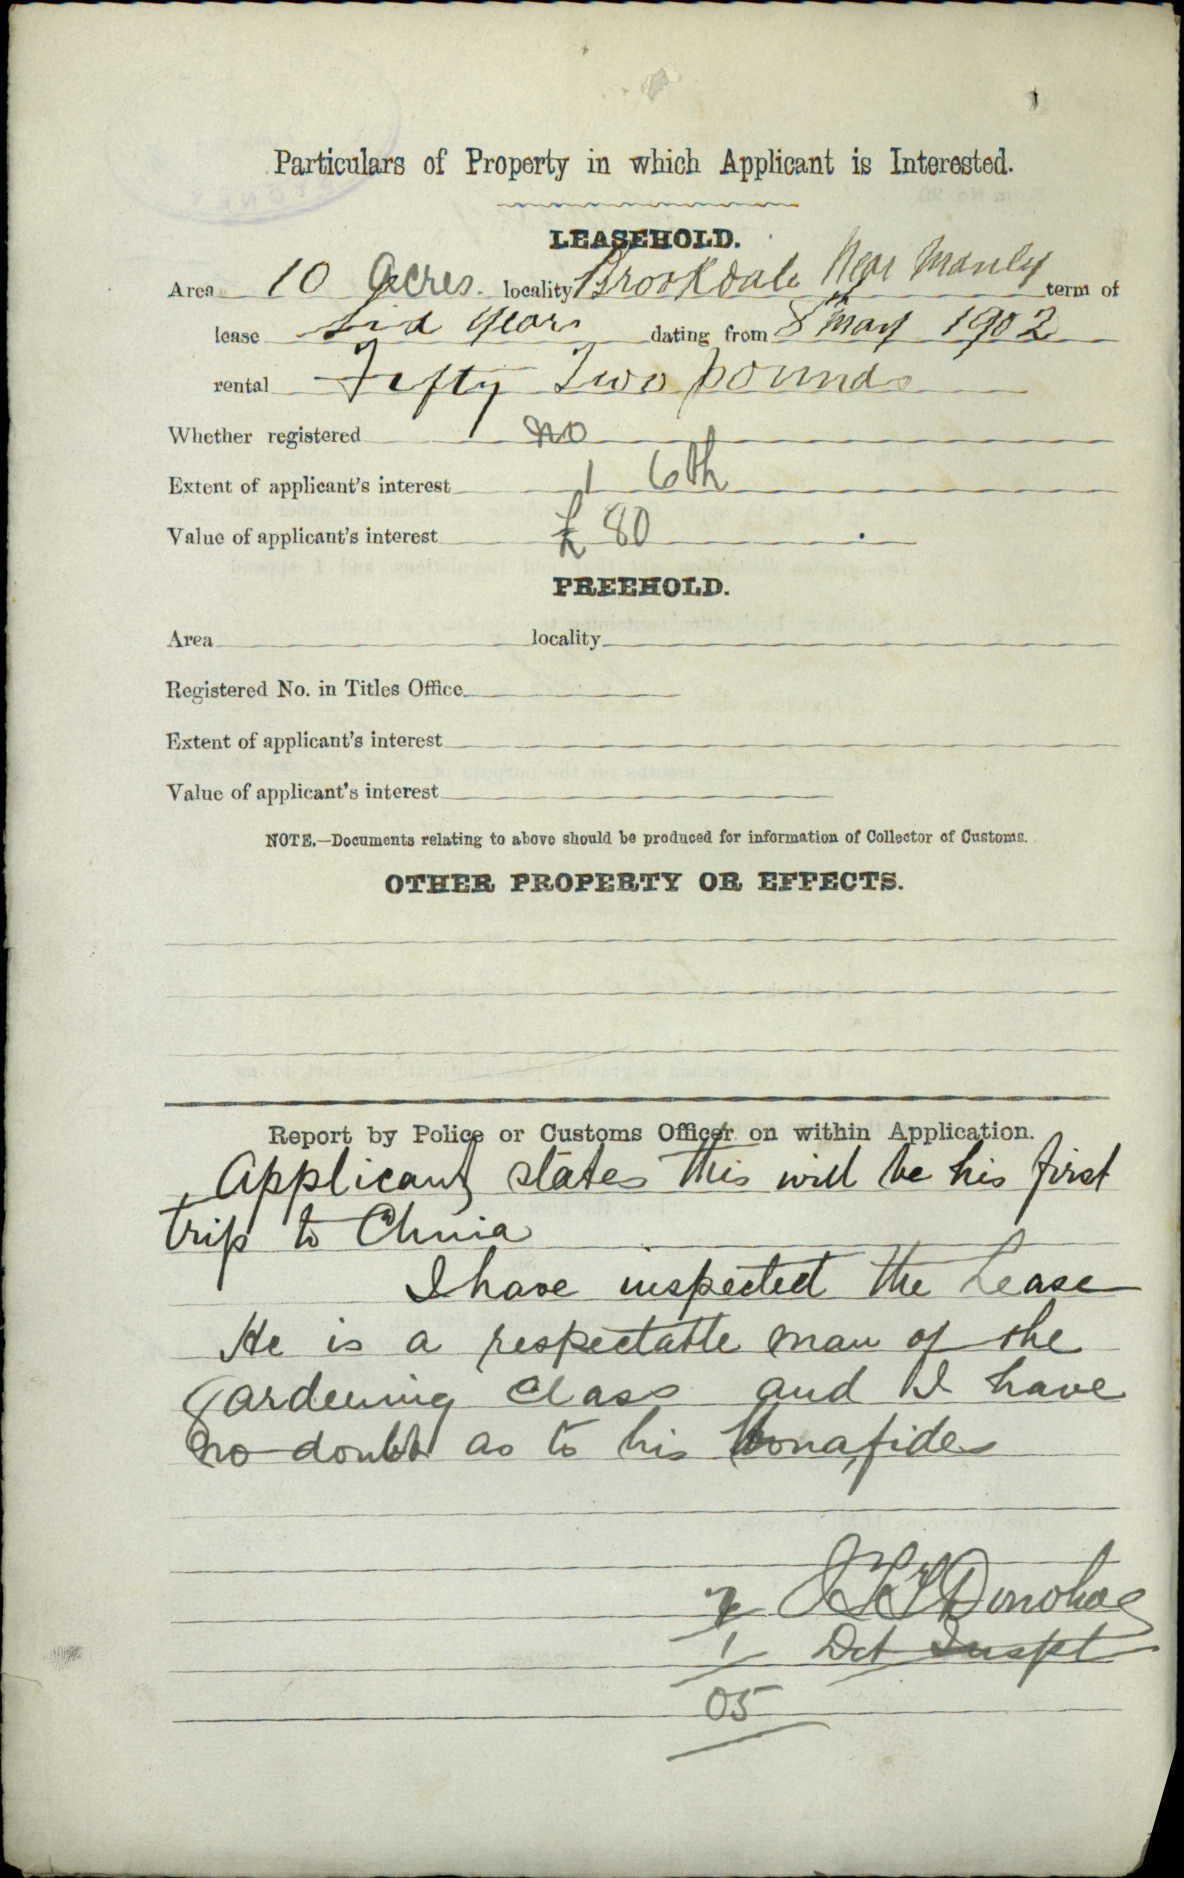 Particulars of Property in which Applicant is Interested.
LEASEHOLD.
Area 10 Acres. locality Brookdale Near Manly term of
lease six years dating from 8th May 1902
rental Fifty Two pounds
Whether registered no
Extent of applicant's interest 1 6th
Value of applicant's interest £ 80
FREEHOLD.
Area locality
Registered No. in Titles Office
Extent of applicant's interest
Value of applicant's interest
NOTE.—Documents relating to above should be produced for information of Collector of Customs.
OTHER PROPERTY OR EFFECTS.
Report by Police or Customs Officer on within Application.
Applicant states this will be his first
trip to China
I have inspected the Lease
He is a respectable man of the
Gardening Class and I have
no doubt as to his bonafides
Donohoe
1 Det Inspt
05